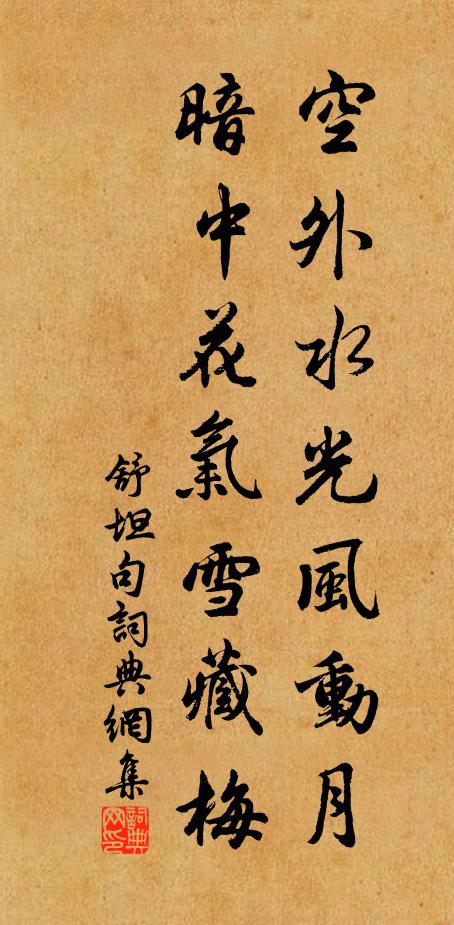 空外水光風動月
暗中花氣雪藏梅
舒坦句詞典網集
詞典网印